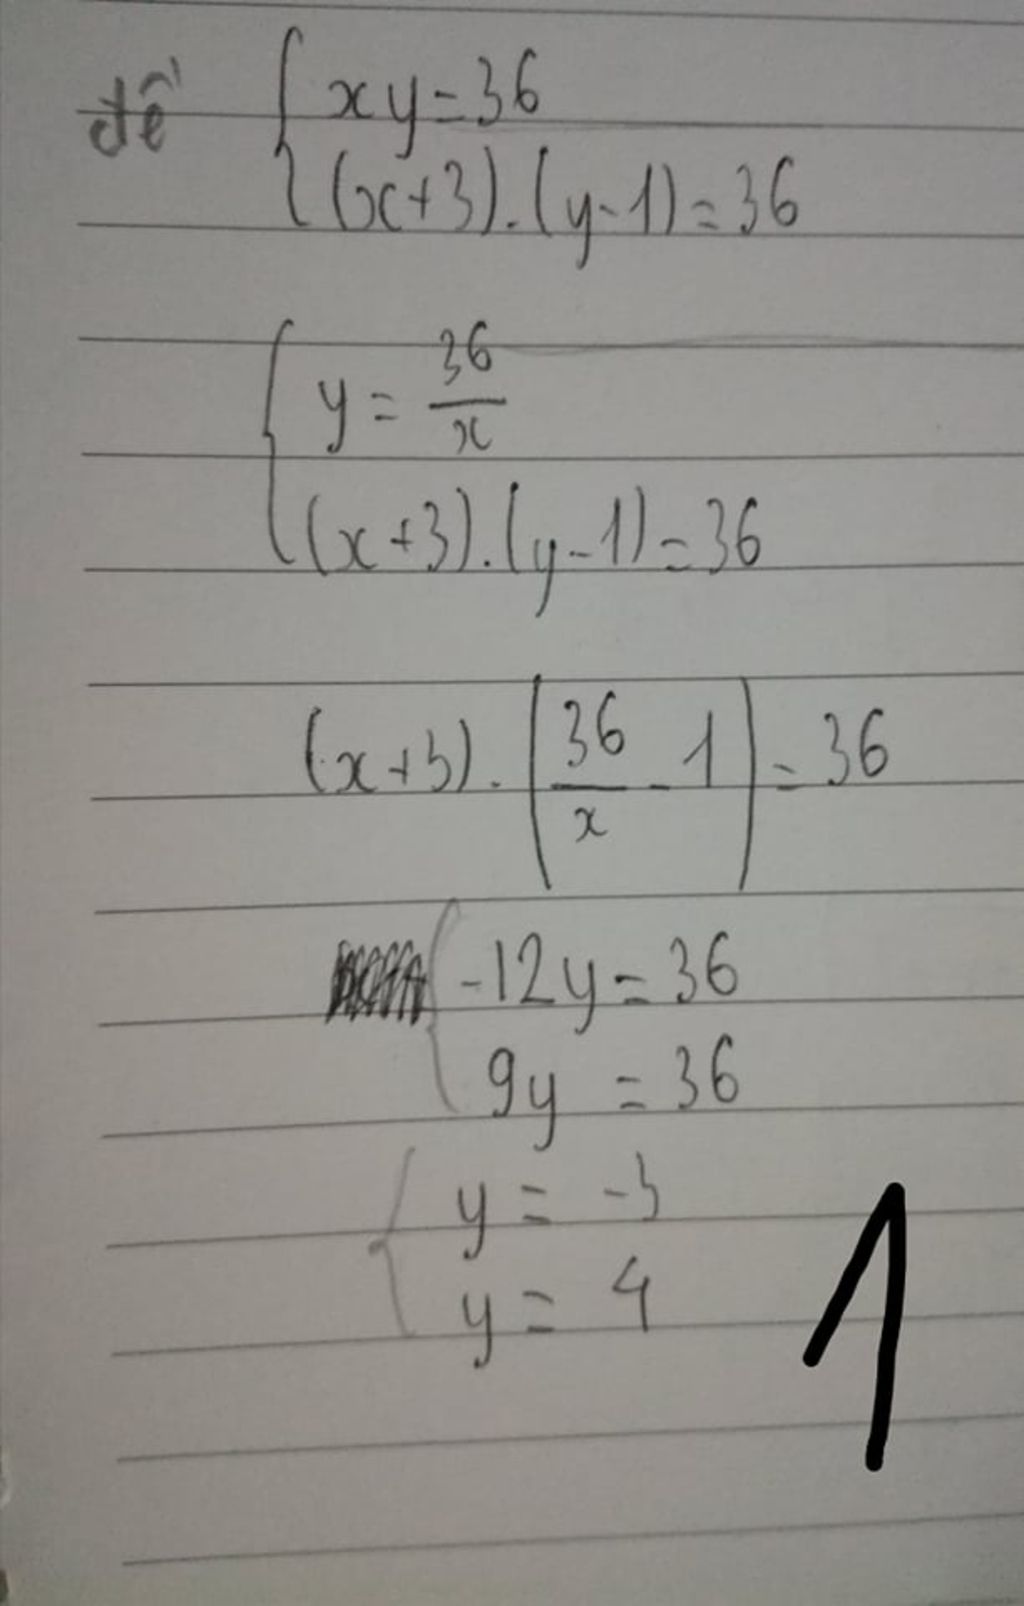 đề { xy = 36
(x+3).(y-1) = 36
{ y = 36/x
(x+3).(y-1) = 36
(x+3).(36/x - 1) = 36
{ -12y = 36
9y = 36
{ y = -3
y = 4
1